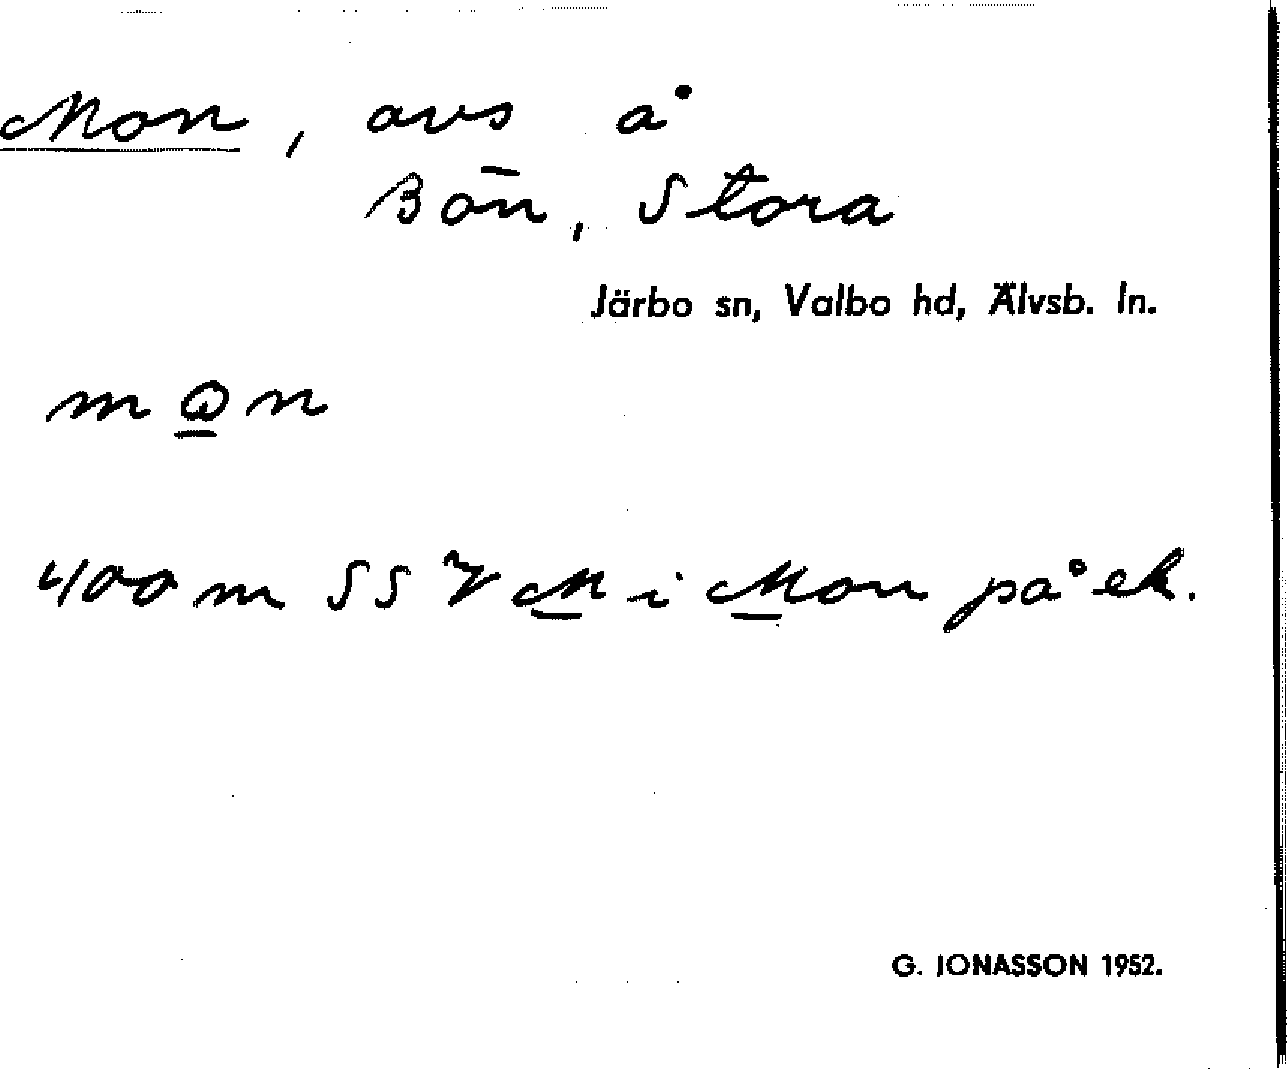 Mon, avs å
Bön, Stora
Järbo sn, Valbo hd, Älvsb. ln.
400 m SSV M i Mon på ek.
G. JONASSON 1952.